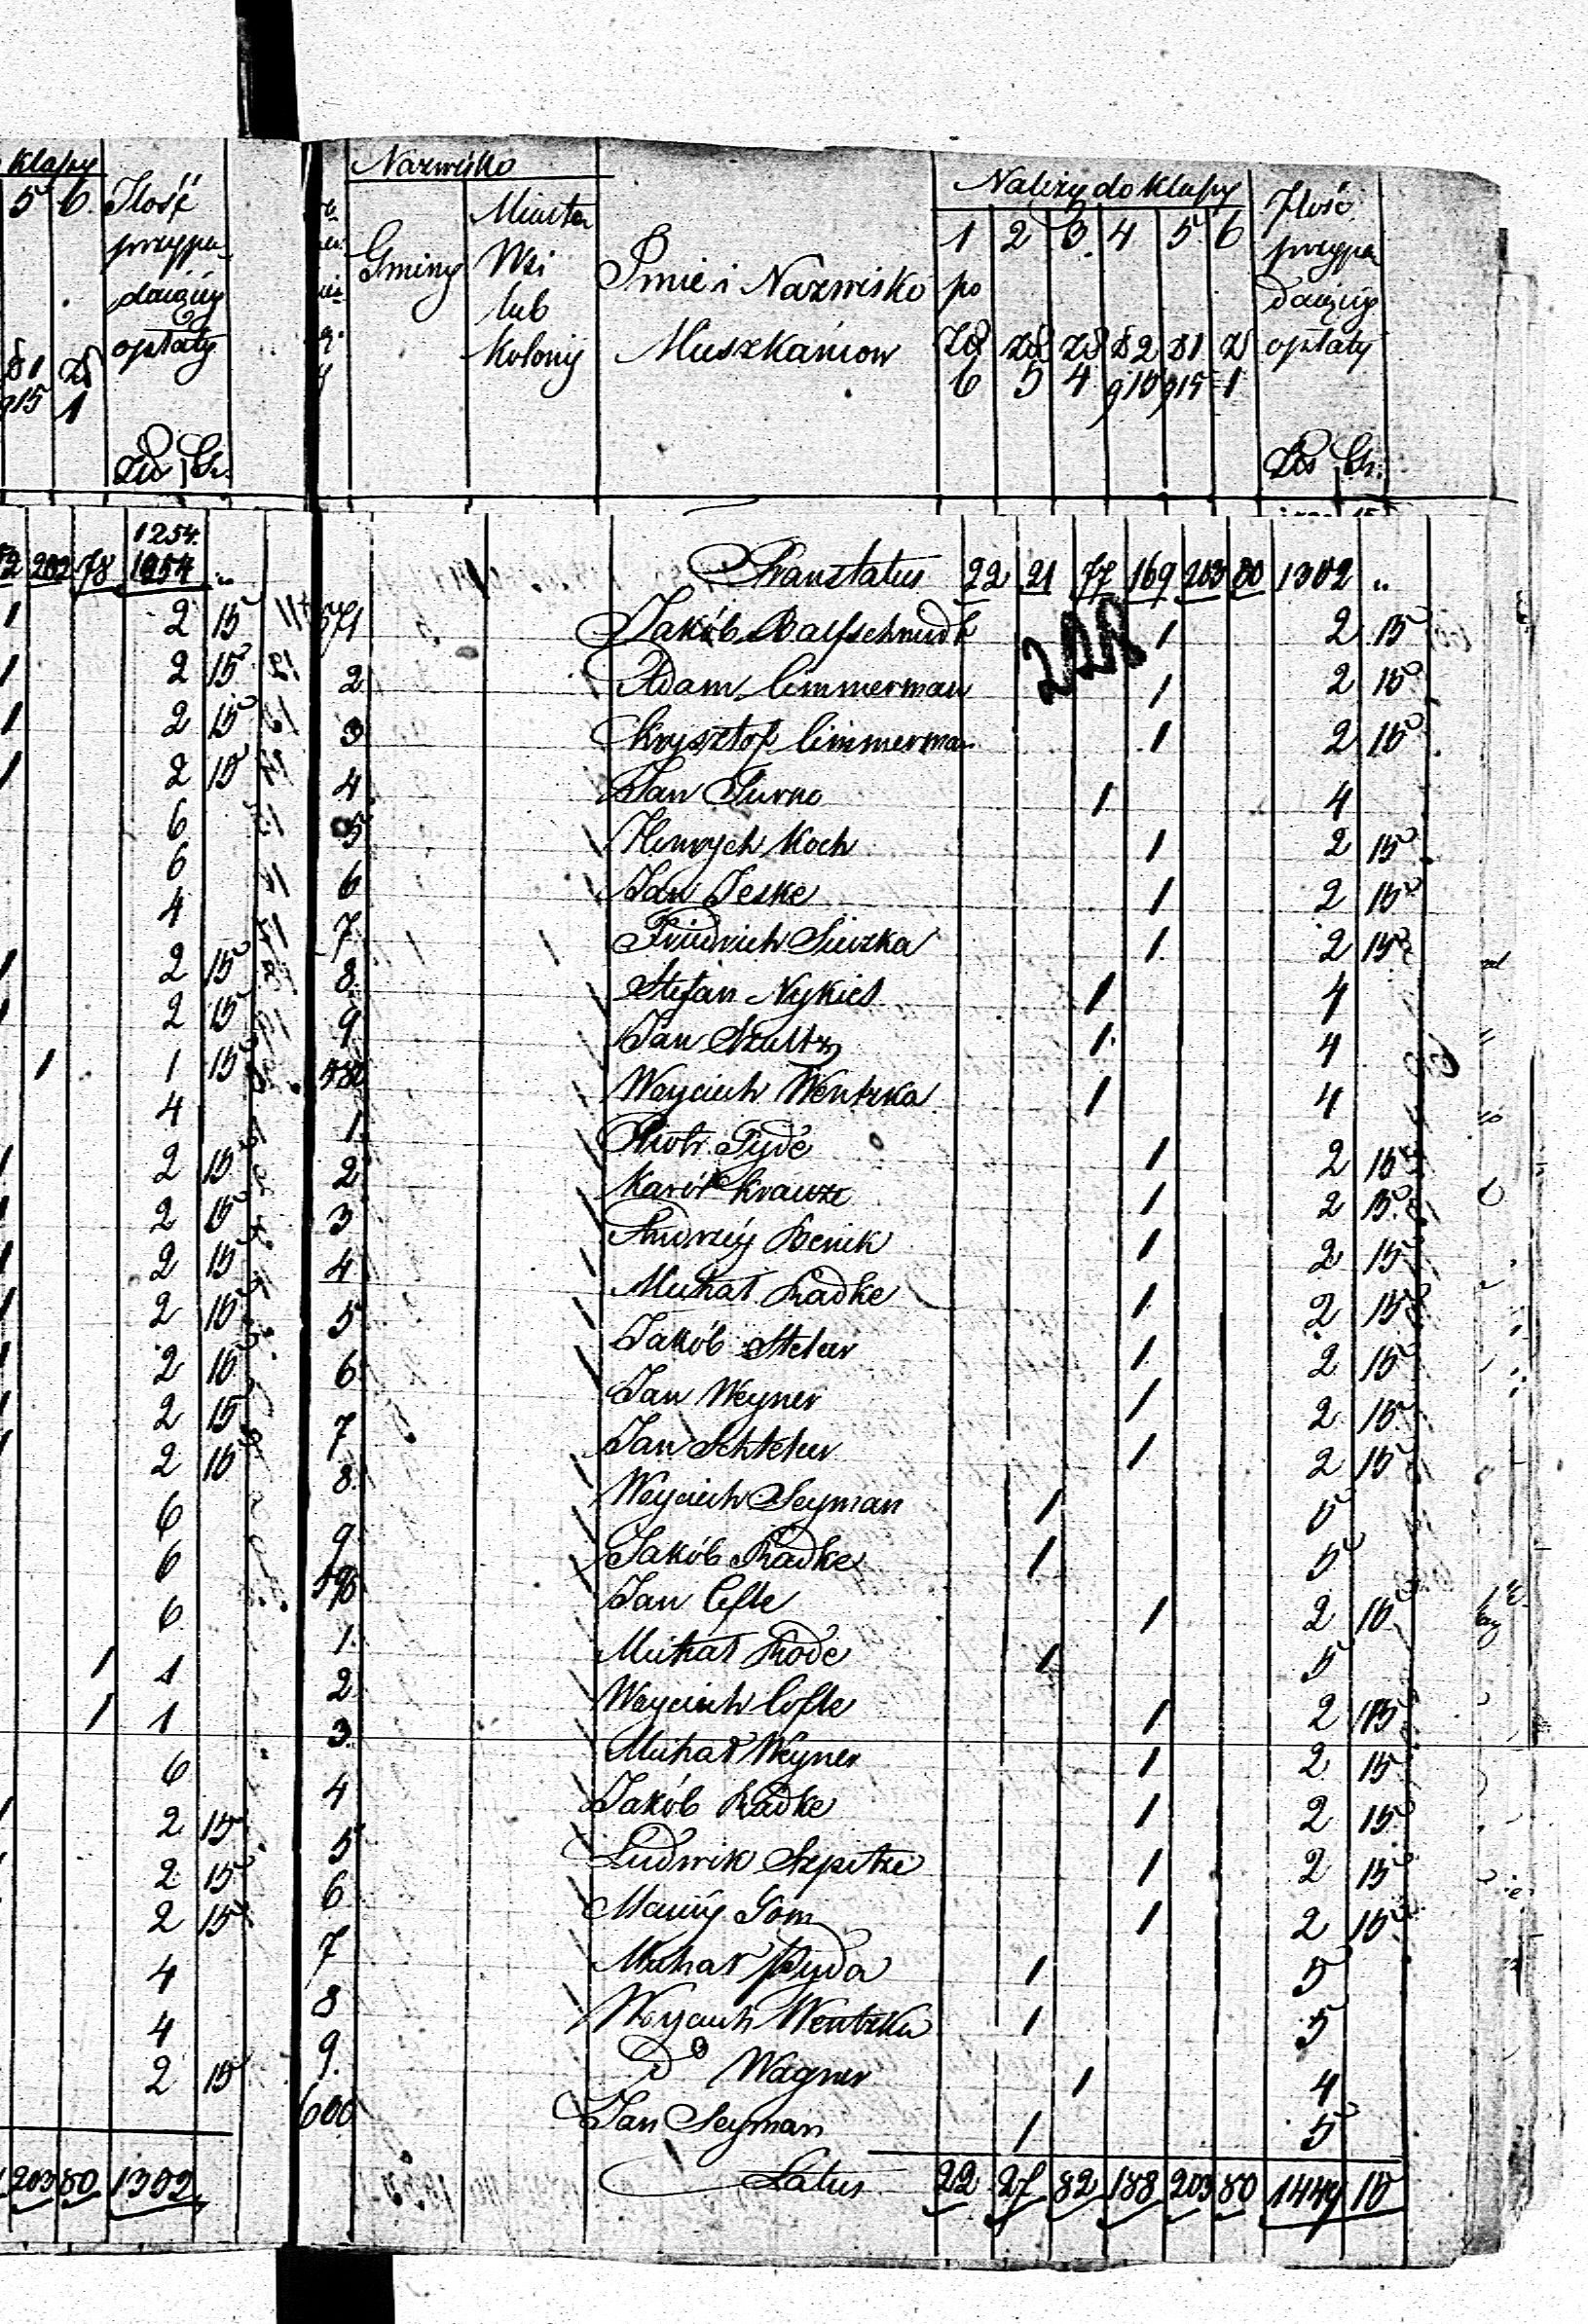 klassy
5 6. Ilość
przypa-
daiący
opłaty
Zł 1 Zł
g15 1
Zł Gr.
1254.
202 78 1254 ..
1 2 15
1 2 15
1 2 15
1 2 15
6
6
4
1 2 15
1 2 15
1 1 15
4
1 2 15
1 2 15
1 2 15
1 2 15
1 2 15
1 2 15
1 2 15
6
6
6
1 1
1 1
6
1 2 15
2 15
2 15
4
4
2 15
203 80 1302
Nazwisko
Gminy
Miasta
Wsi
lub
Kolonij
Imie i Nazwisko
Mieszkańcow
Należy do klassy
1 2 3. 4 5. 6
po
Zł Zł Zł Zł 2 Zł 1 Zł
6 5 4 g15 g15 1
Ilość
przypa
daiący
opłaty
Zł Gr.
Transtatus 22 21 77 169 203 80 1302 ..
228
571 Jakób 1 2 15
2 Adam Cimmerman 1 2 15
3 Krysztof Cimmerman 1 2 15
4 Jan Turno 1 4
5 Henrych Koch 1 2 15
6 Jan Jeske 1 2 15
7 Fridrich 1 2 15
8. Stefan Nykiel 1 4
9 Jan Szultz 1 4
580 Woyciech Wentzka 1 4
1. Piotr Tyde 1 2 15
2 Karól Krauze 1 2 15
3 Andrzéy 1 2 15
4 Michał Radke 1 2 15
5 Jakób 1 2 15
6 Jan Weyner 1 2 15
7 Jan 1 2 15
8. Woyciech Seyman 1 5
9 Jakób Radke 1 5
590 Jan 1 2 15
1. Michał Rode 1 5
2 Woyciech 1 2 15
3. Michał Weyner 1 2 15
4 Jakób Radke 1 2 15
5 Ludwik 1 2 15
6 Maciéy 1 2 15
7 Michał 1 5
8 Woyciech Wentzka 1 5
9. do Wagner 1 4
600 Jan Seyman 1 5
Latus 22 27 82 188 203 80 1449 15